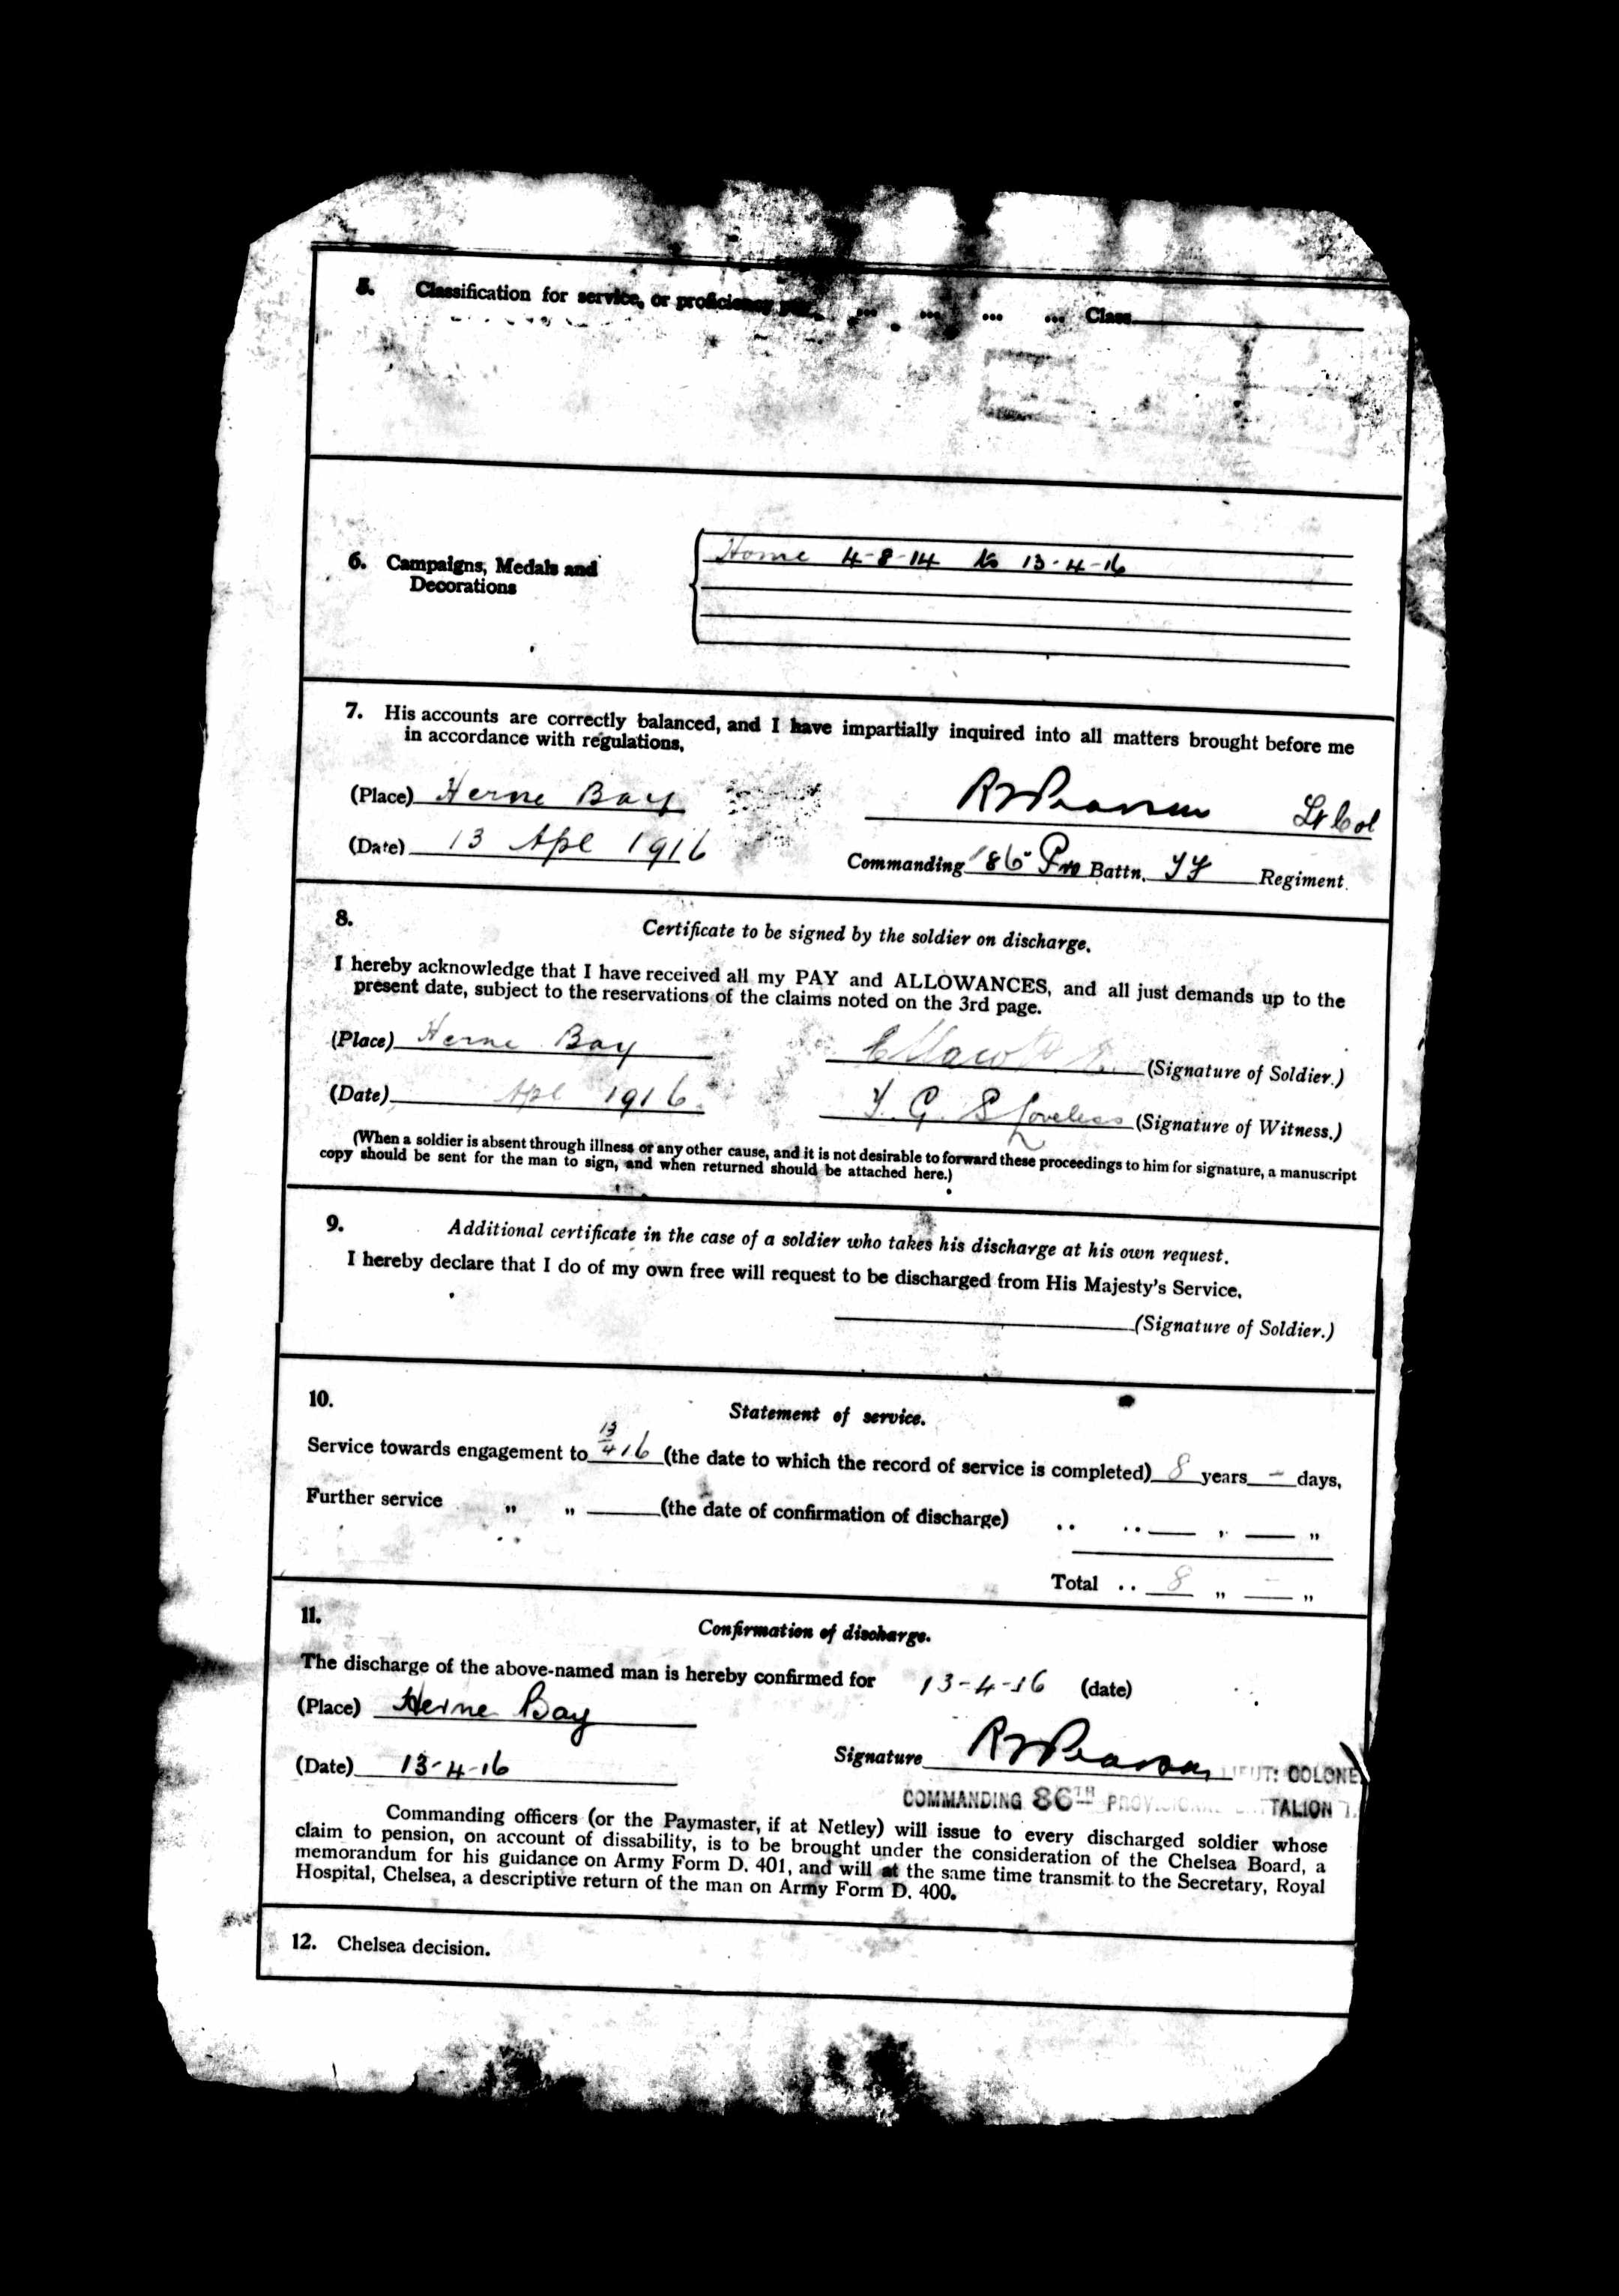 5. Classification for service, or proficiency pay. ... ... ... ... Class
6. Campaigns, Medals and Decorations
Home 4-8-14 to 13-4-16
7. His accounts are correctly balanced, and I have impartially inquired into all matters brought before me
in accordance with regulations.
(Place) Herne Bay
Lt Col
(Date) 13 Apl 1916
Commanding 86 Pro Battn. Regiment.
8. Certificate to be signed by the soldier on discharge.
I hereby acknowledge that I have received all my PAY and ALLOWANCES, and all just demands up to the
present date, subject to the reservations of the claims noted on the 3rd page.
(Place) Herne Bay (Signature of Soldier.)
(Date) Apl 1916 G. S Loveless (Signature of Witness.)
(When a soldier is absent through illness or any other cause, and it is not desirable to forward these proceedings to him for signature, a manuscript
copy should be sent for the man to sign, and when returned should be attached here.)
9. Additional certificate in the case of a soldier who takes his discharge at his own request.
I hereby declare that I do of my own free will request to be discharged from His Majesty's Service.
(Signature of Soldier.)
10. Statement of service.
Service towards engagement to 13/4 16 (the date to which the record of service is completed) 8 years - days,
Further service „ „ (the date of confirmation of discharge) .. .. „ „
Total .. 8 „ - „
11. Confirmation of discharge.
The discharge of the above-named man is hereby confirmed for 13-4-16 (date)
(Place) Herne Bay
Signature R W Pearson LIEUT: COLONEL
(Date) 13-4-16
COMMANDING 86TH PROVISIONAL BATTALION T.
Commanding officers (or the Paymaster, if at Netley) will issue to every discharged soldier whose
claim to pension, on account of dissability, is to be brought under the consideration of the Chelsea Board, a
memorandum for his guidance on Army Form D. 401, and will at the same time transmit to the Secretary, Royal
Hospital, Chelsea, a descriptive return of the man on Army Form D. 400.
12. Chelsea decision.